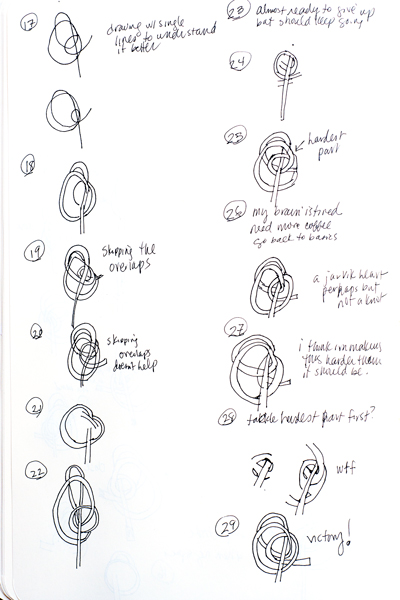 17
drawing w/ single
lines to understand
it better
18
19
skipping the
overlaps
20
skipping
overlaps
doesn't help
21
22
23
almost ready to give up
but should keep going
24
25
hardest
part
26
my brain is tired
need more coffee
go back to basics
a jarvik heart
perhaps but
not a knot
27
i think i'm making
this harder than
it should be.
28
tackle hardest part first?
wtf
29
victory!